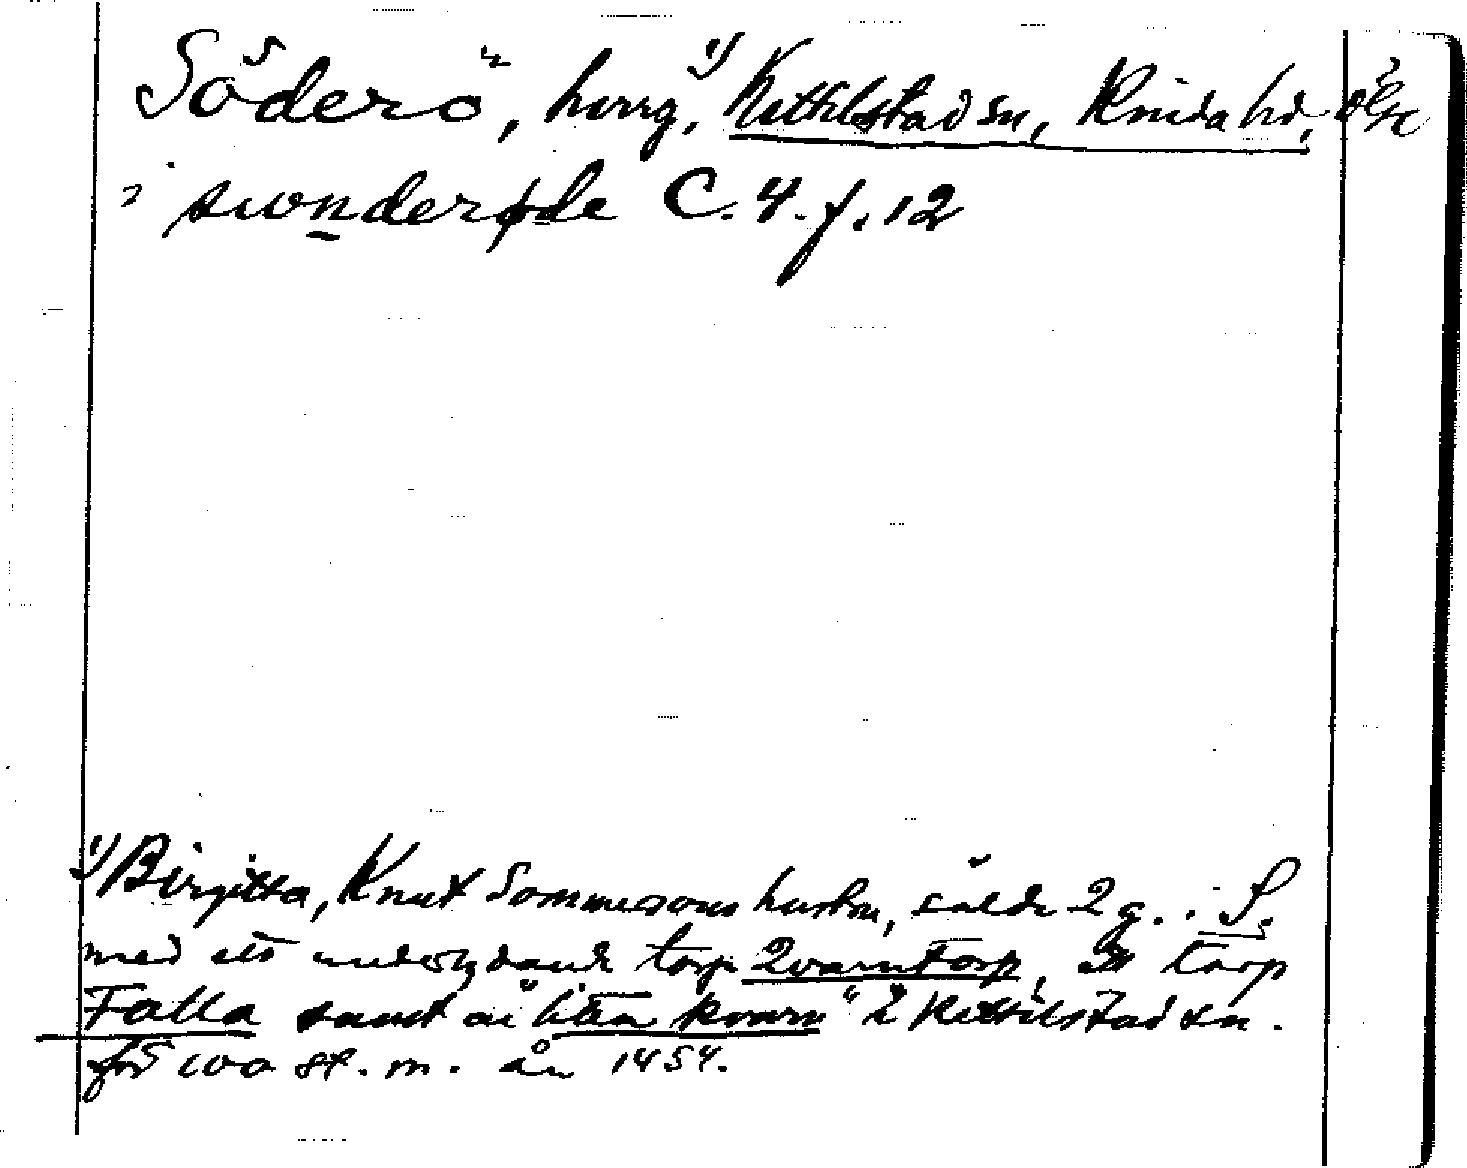 Söderö, herrg,¹⁾ Kettilstad sn, Kinda hd, Ög
i swnderøde C. 4. f. 12
¹⁾ Birgitta, Knut Sommesons hustru, sålde 2 g. i S.
med ett underlydande torp Qvarntorp, ett torp
Falla samt en "liten kvarn" i Kettilstad sn.
för 100 st. m. år 1454.